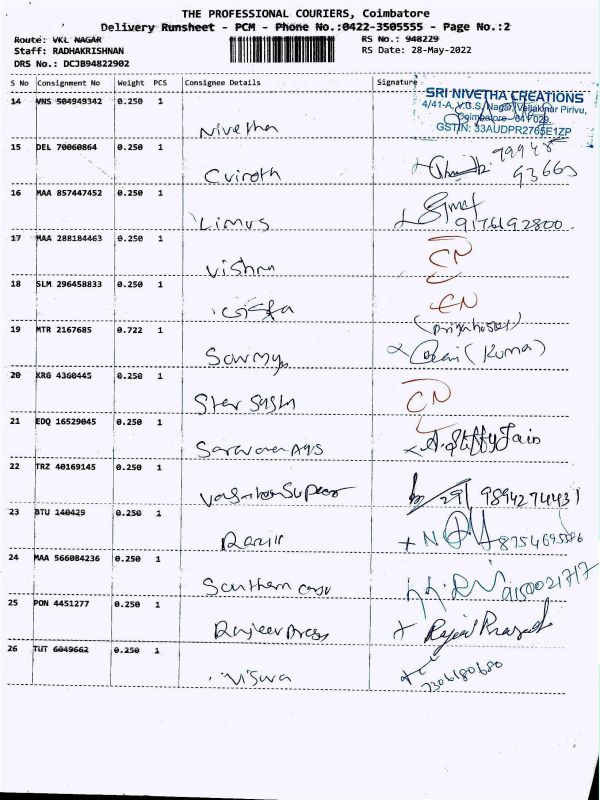 THE PROFESSIONAL COURIERS, Coimbatore
Delivery Runsheet - PCM - Phone No.:0422-3505555 - Page No.:2
Route: VKL NAGAR RS No.: 948229
Staff: RADHAKRISHNAN RS Date: 28-May-2022
DRS No.: DCJB94822902
S No Consignment No Weight PCS Consignee Details Signature
SRI NIVETHA CREATIONS
4/41-A, V.G.S. Nagar, Vellakinar Pirivu,
Coimbatore - 641 029.
GSTIN: 33AUDPR2765E1ZP
14 VNS 504949342 0.250 1 Nivetha
15 DEL 70060864 0.250 1 79948
93663
16 MAA 857447452 0.250 1 Limus 9176192800
17 MAA 288184463 0.250 1 Vishnu CN
18 SLM 296458833 0.250 1 CN
19 MTR 2167685 0.722 1 Sowmya (Kuma)
20 KRG 4360445 0.250 1 Star CN
21 EDQ 16529045 0.250 1 Saravana Ags
22 TRZ 40169145 0.250 1 9894274431
23 BTU 140429 0.250 1
24 MAA 566084236 0.250 1 Southern 9150021717
25 PON 4451277 0.250 1 Rajeev Press
26 TUT 6049662 0.250 1 Viswa 7306180680